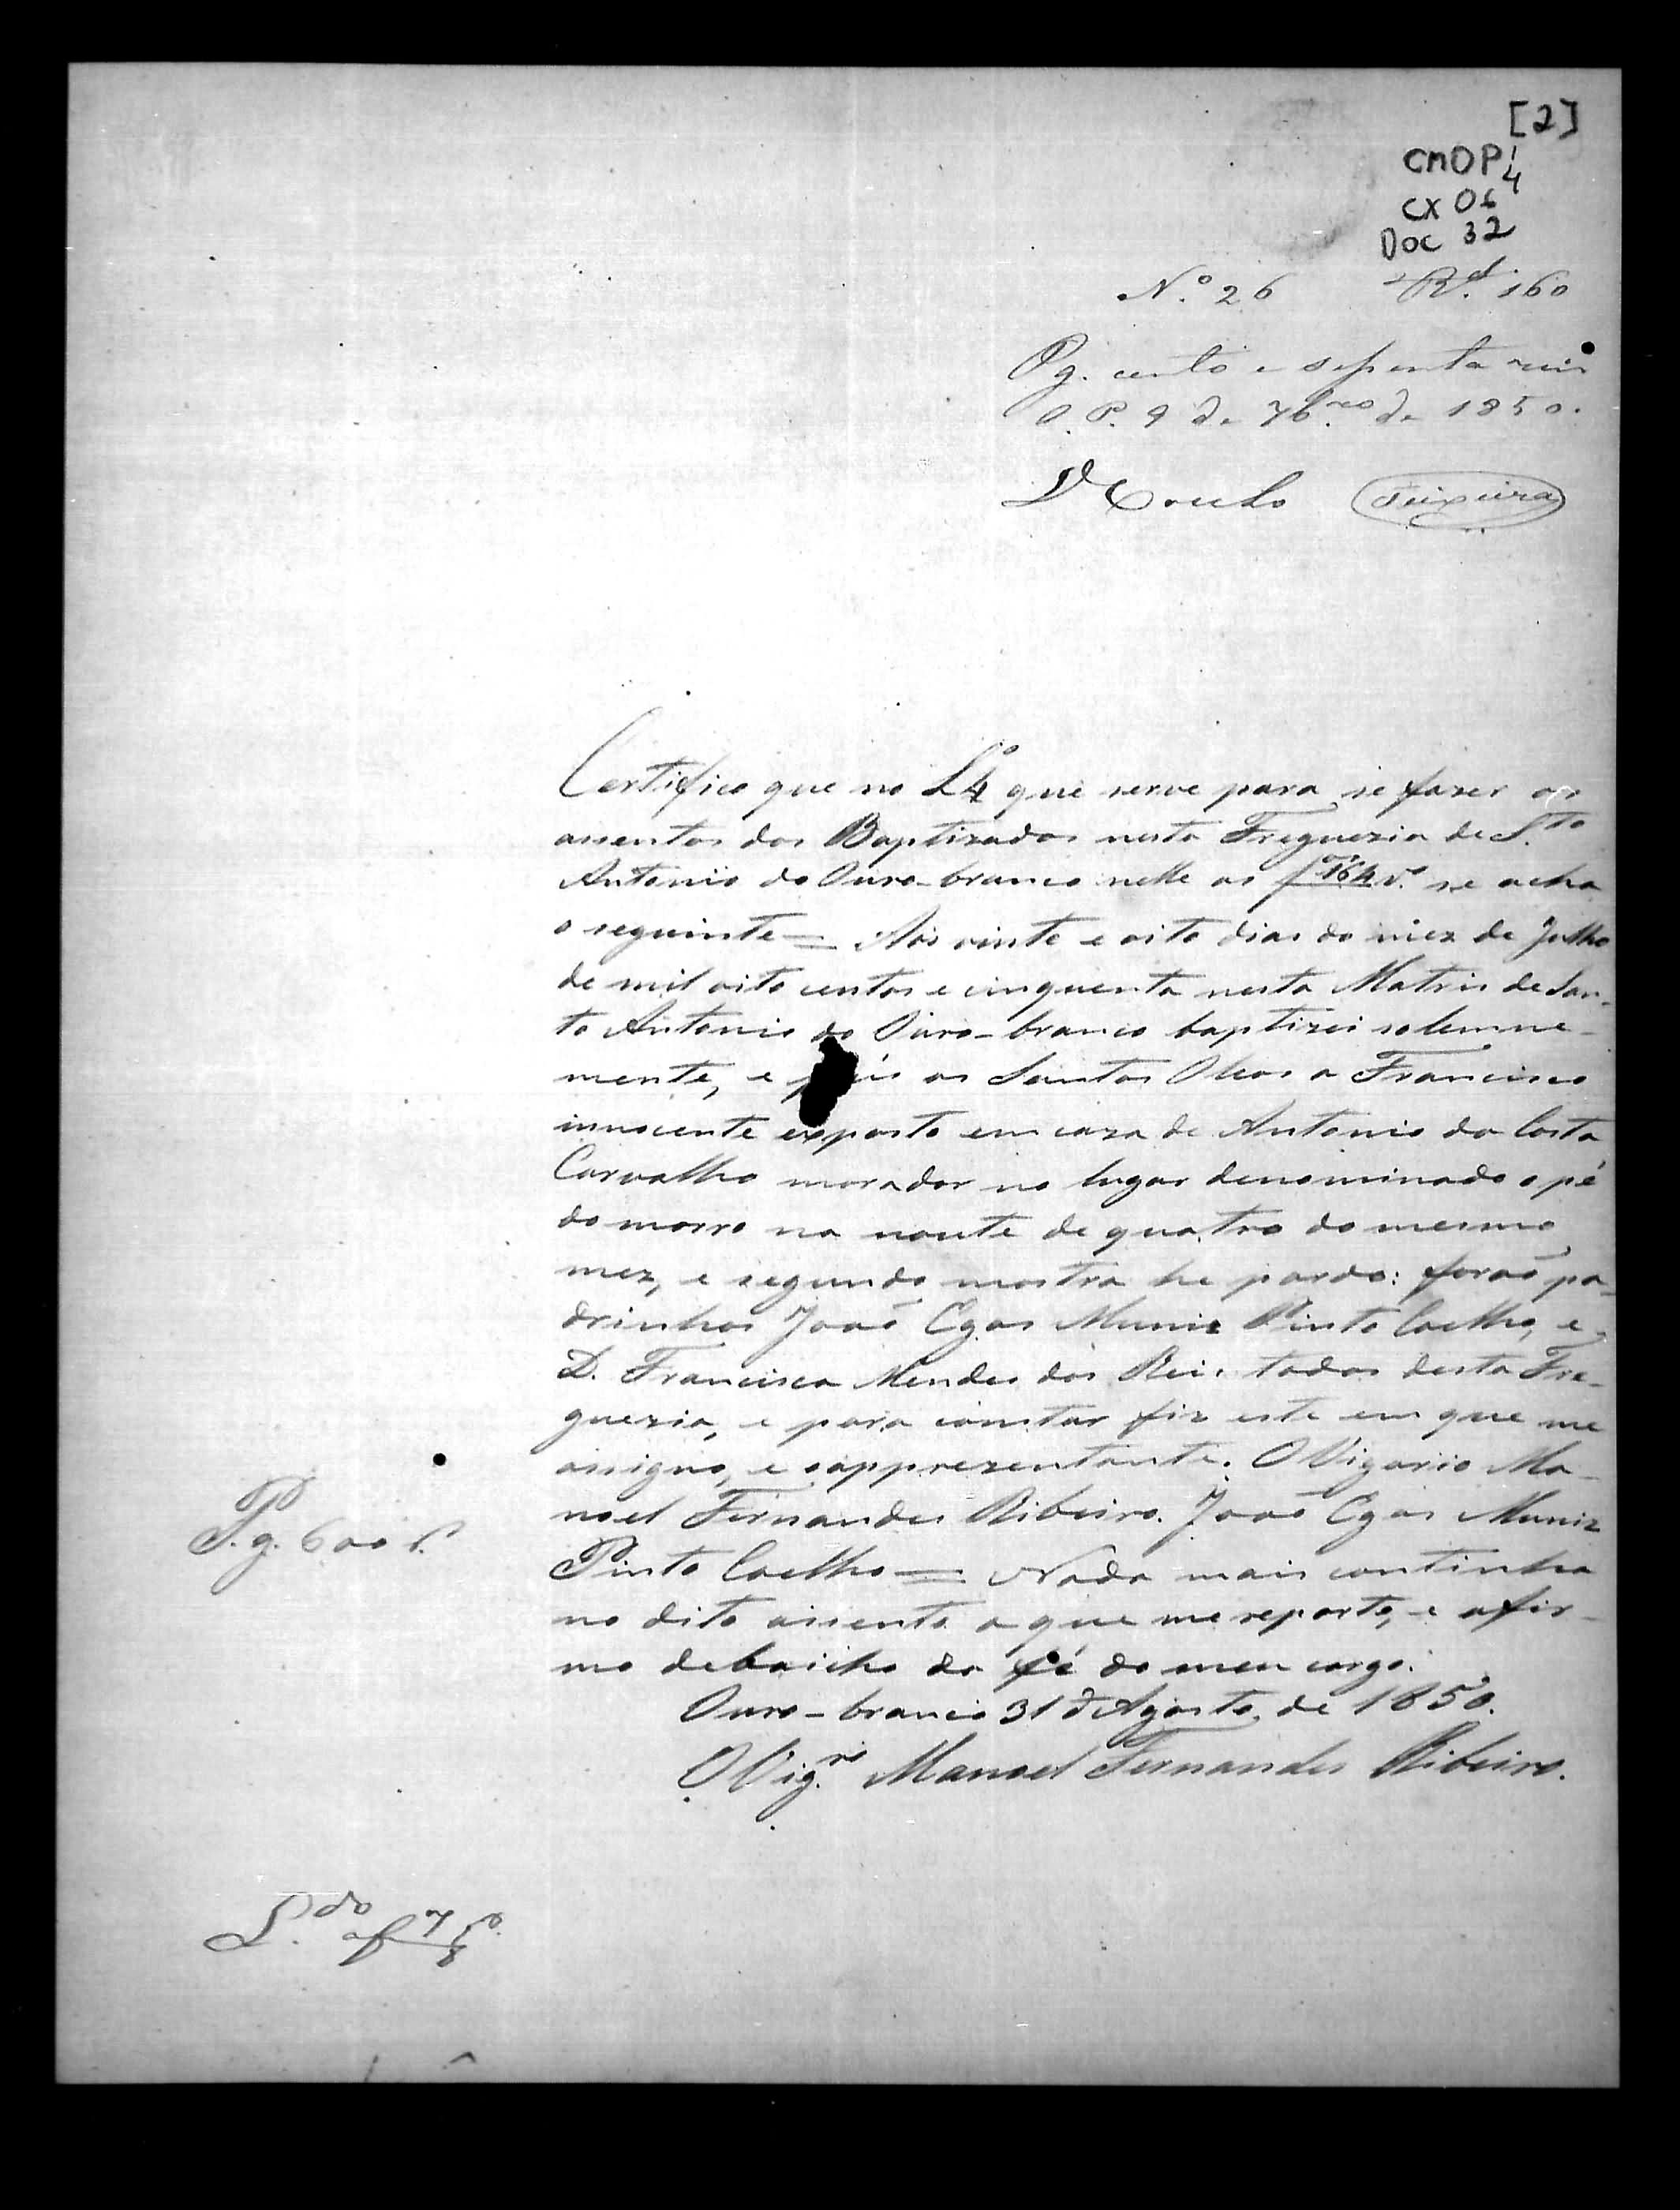 [2]
CMOP 1/4
CX 06
DOC 32
N.º 26 Rˢ. 160
Pg. cento e sessenta reis
O. P. 9 de 7b.ʳᵒ de 1850.
Teixeira
Certifico que no L.º 4 que serve para se fazer os
assentos dos Baptizados nesta Freguezia de S.ᵗᵒ
Antonio do Ouro-branco nelle as f 164 v.º se acha
o seguinte = Aos vinte e oito dias do mez de Julho
de mil oito centos e cinquenta nesta Matris de San-
to Antonio do Ouro-branco baptizei solemne-
mente, e os Santos Oleos a Francisco
innocente exposto em caza de Antonio da Costa
Carvalho morador no lugar denominado o pé
do morro na noute de quatro do mesmo
mez, e segundo mostra he pardo: forão pa-
drinhos João Egas Muniz Pinto Coelho, e
D. Francisca Mendes dos Reis todos desta Fre-
guezia, e para constar fiz este em que me
assigno, e o apprezentante. O Vigario Ma-
noel Fernandes Ribeiro. João Egas Muniz
Pinto Coelho = Nada mais continha
no dito assento a que me reporto, e afir-
mo debaicho da fé do meu cargo.
Ouro-branco 31 de Agosto de 1850.
O Vig.ʳᵒ Manoel Fernandes Ribeiro.
P.g. 600 r.